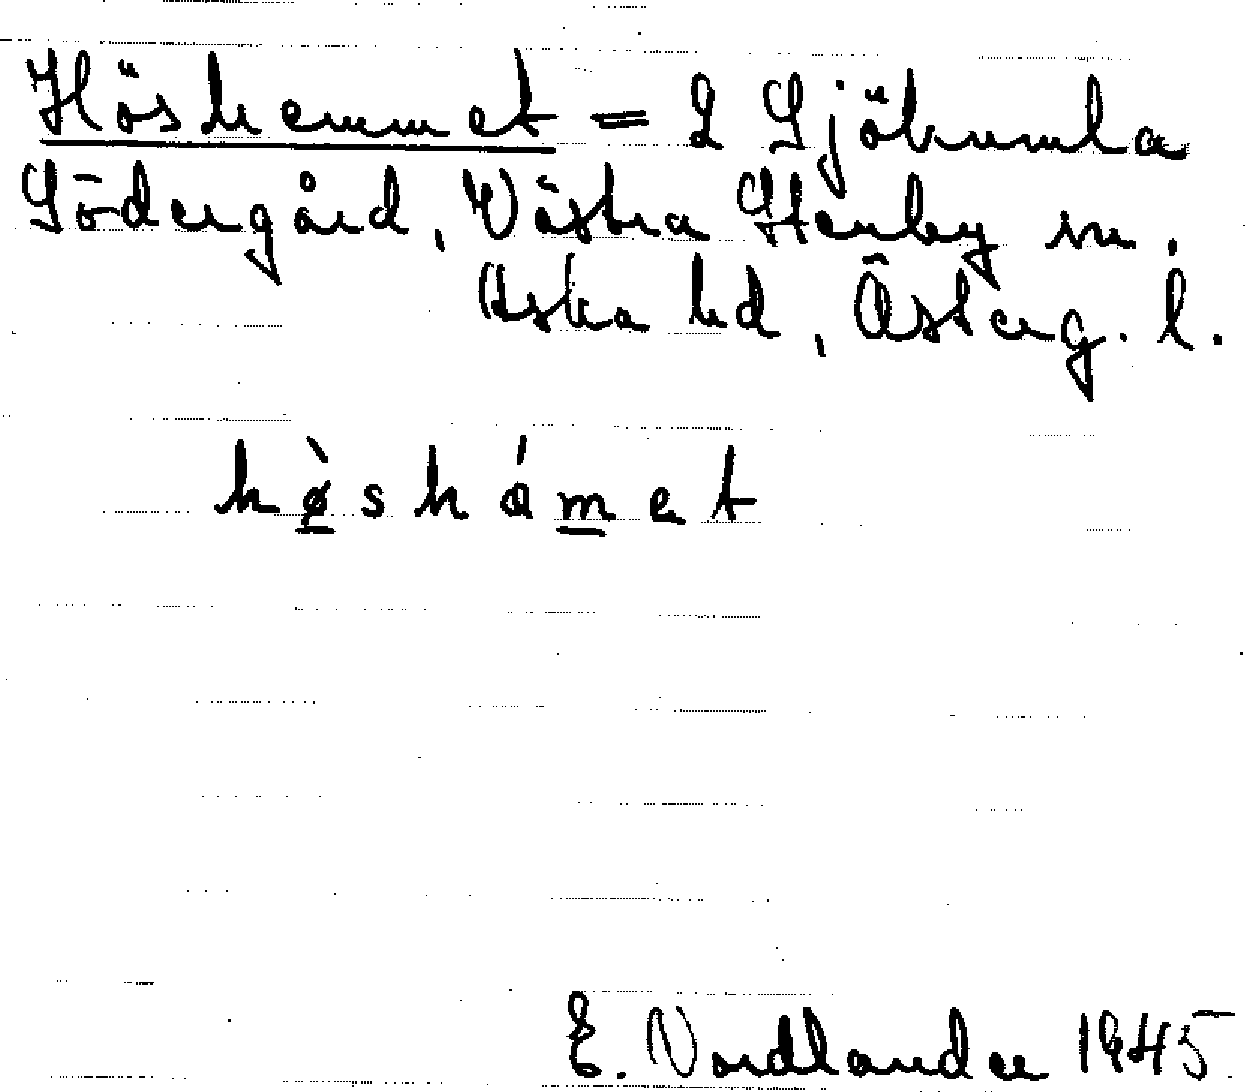 Höshemmet = 2 Sjökumla
Södergård, Västra Stenby sn.
Aska hd, Österg. l.
hø̱̀shám̱et
E. Nordlander 1945